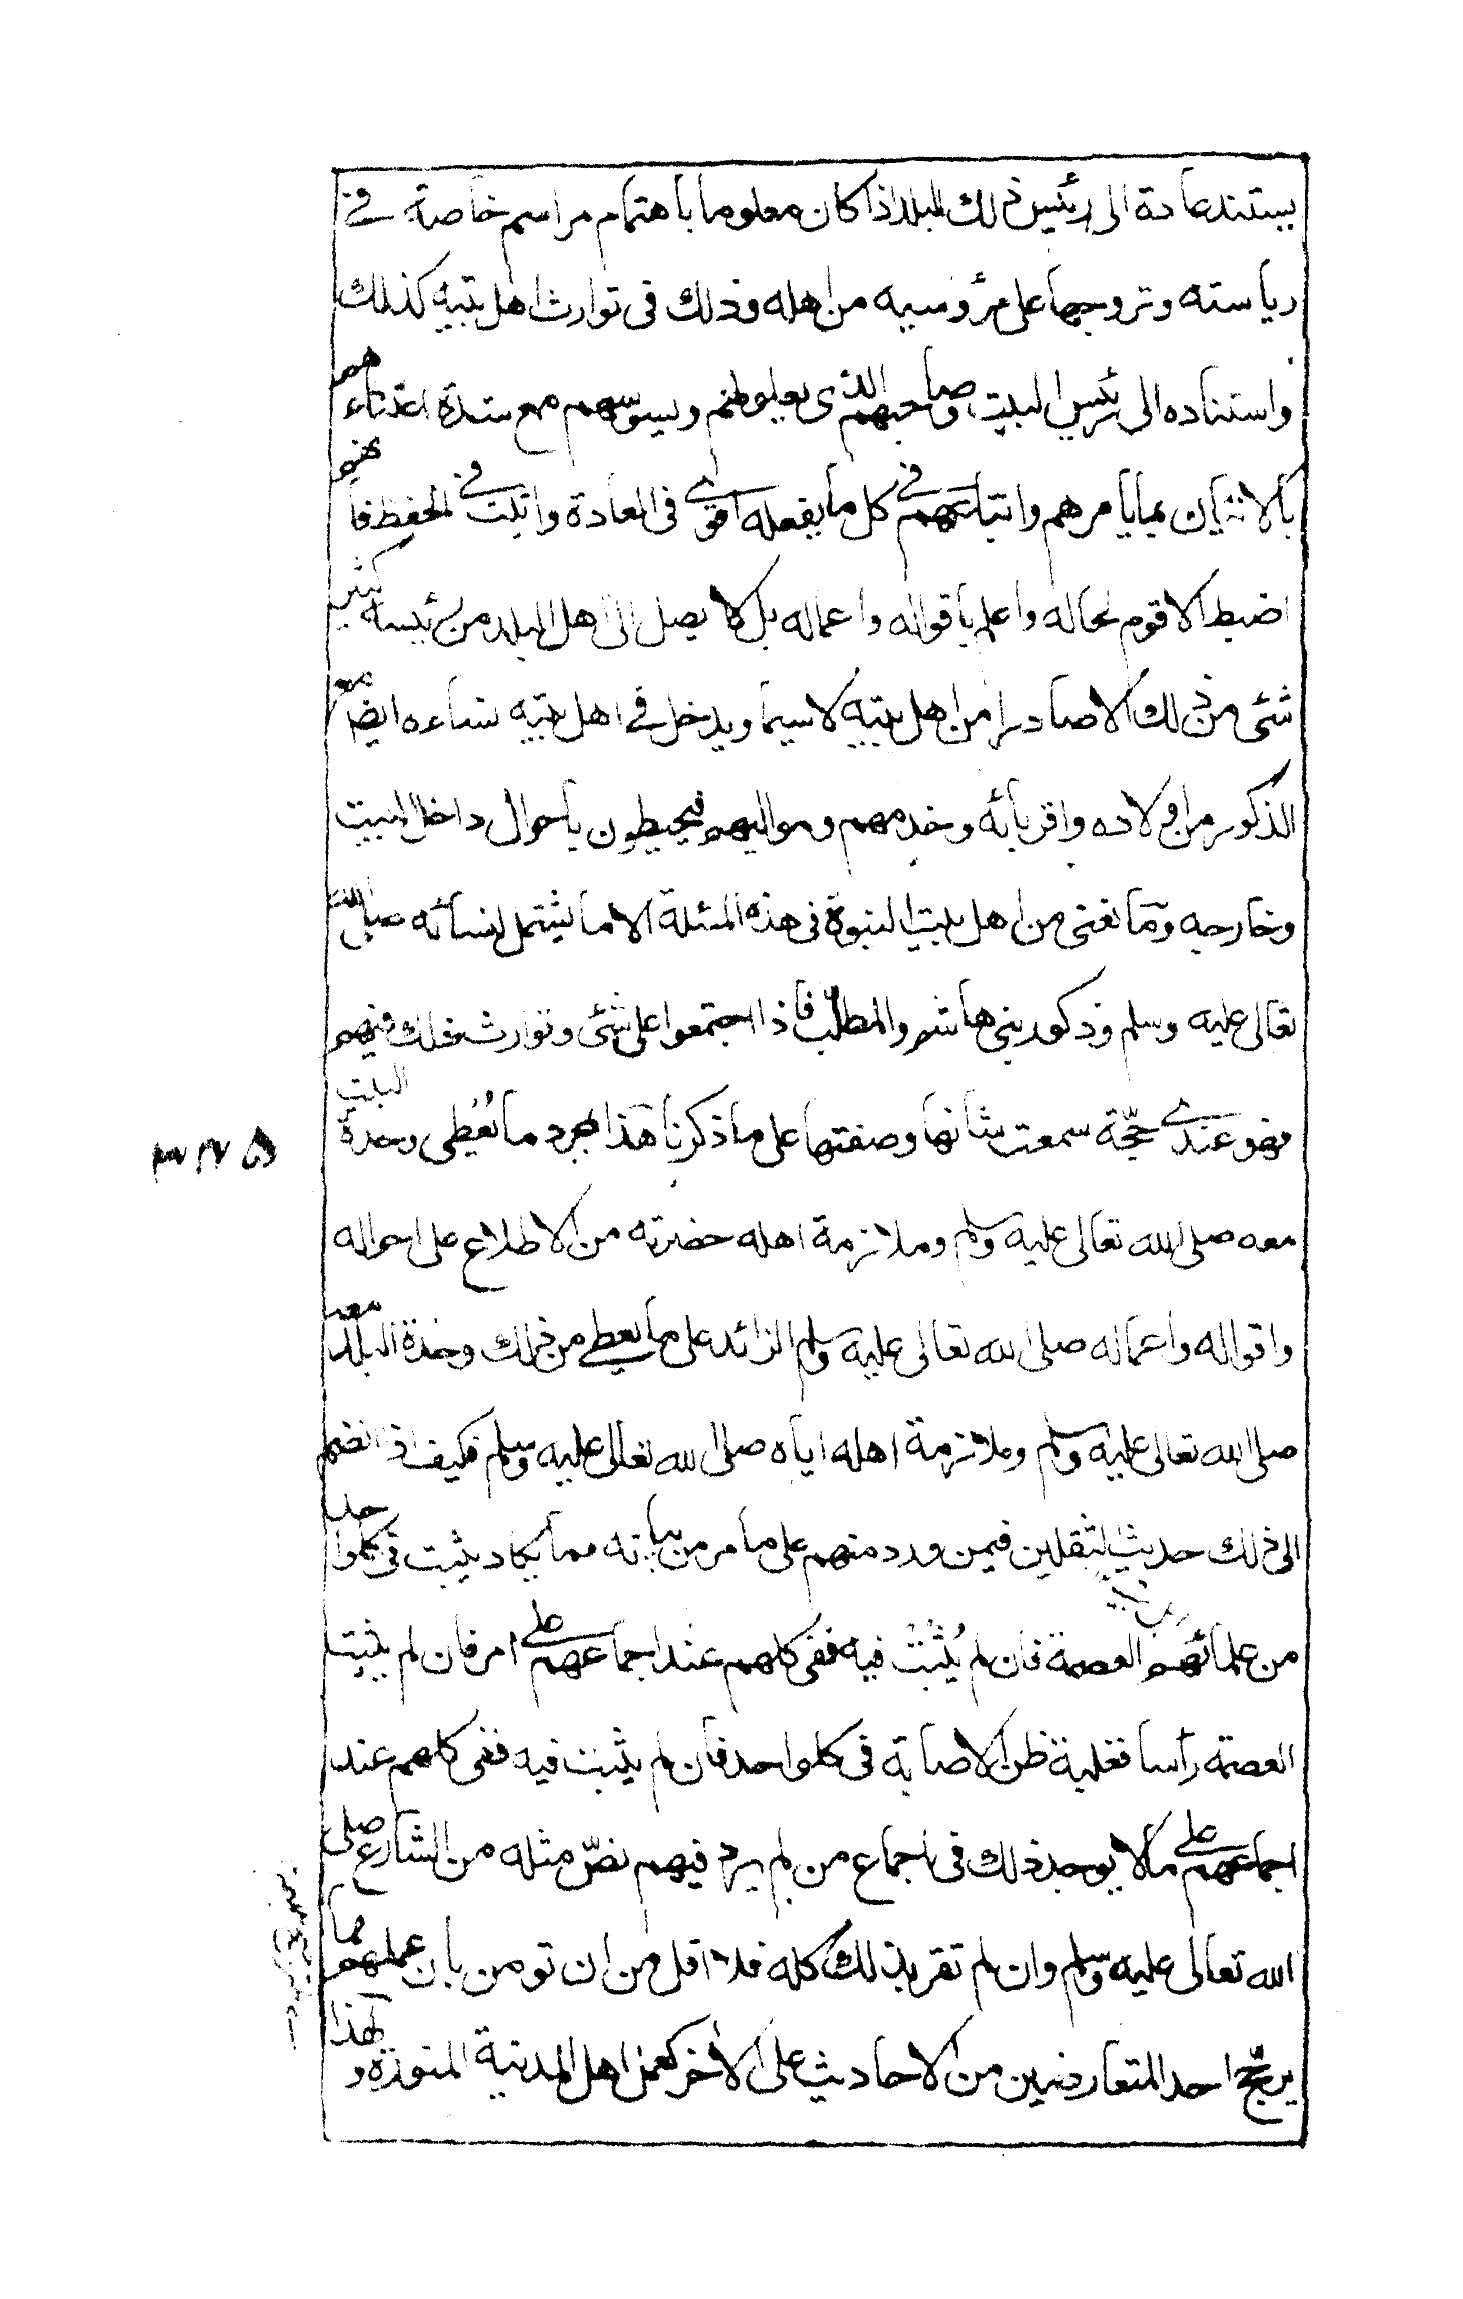 يستند عادة الى رئيس ذلك البلد اذا كان معلوما باهتمام مراسم خاصة في
رياسته وترويجها على مرؤوسيه من اهله وذلك فى توارث اهل بيته كذلك
واستناده الى رئيس البيت وصاحبهم الذى يعلوطنهم ويسوسهم مع شدة اعتناءهم
بالاتيان بما يأمرهم واتباعهم فى كل ما يفعله اقوى فى العادة واثبت فى الحفظ فانهم
اضبط الاقوم بحاله واعلم باقواله واعماله بل لا يصل الى اهل البلد من رئيسه كثير
شئى من ذلك الا صادرا من اهل بيته لاسيما ويدخل في اهل بيته نساءه ايضا مع
الذكور من اولاده واقربائه وخدمهم ومواليهم فيحيطون باحوال داخل البيت
وخارجه وما نعنى من اهل بيت النبوة فى هذه المسئلة الا ما يشتمل لنسائه صلى الله
تعالى عليه وسلم وذكور بنى هاشم والمطلب فاذا اجتمعوا على شئى وتوارث ذلك فيهم
فهو عندى حجّة سمعت شانها وصفتها على ما ذكرنا هذا بمجرد ما تُعْطِى وحدة البيت
معه صلى الله تعالى عليه وسلم وملازمة اهله حضرته من الاطلاع على احواله
واقواله واعماله صلى الله تعالى عليه وسلم الزائد على ما يعطى من ذلك وحدة البلد معه
صلى الله تعالى عليه وسلم وملازمة اهله اياه صلى الله تعالى عليه وسلم فكيف اذا انضم
الى ذلك حديث الثقلين فيمن ورد منهم على ما مر من بيانه مما يكاد يثبت فى كل واحد
من علمائهم العصمة فان لم يُثْبَتْ فيه ففى كلهم عند اجماعهم على امر فان لم يثبت
العصمة رأسا فغلبة ظن الاصابة فى كل واحد فان لم يثبت فيه ففى كلهم عند
اجماعهم على ما لا يوجد ذلك فى اجماع من لم يرد فيهم نصّ مثله من الشارع صلى
الله تعالى عليه وسلم وان لم تقر بذلك كله فلا اقل من ان تومن بان عملهم مما
يرجّح احد المتعارضين من الاحاديث على الاٰخر كعمل اهل المدينة المنورة ولهذا
٣٢٥